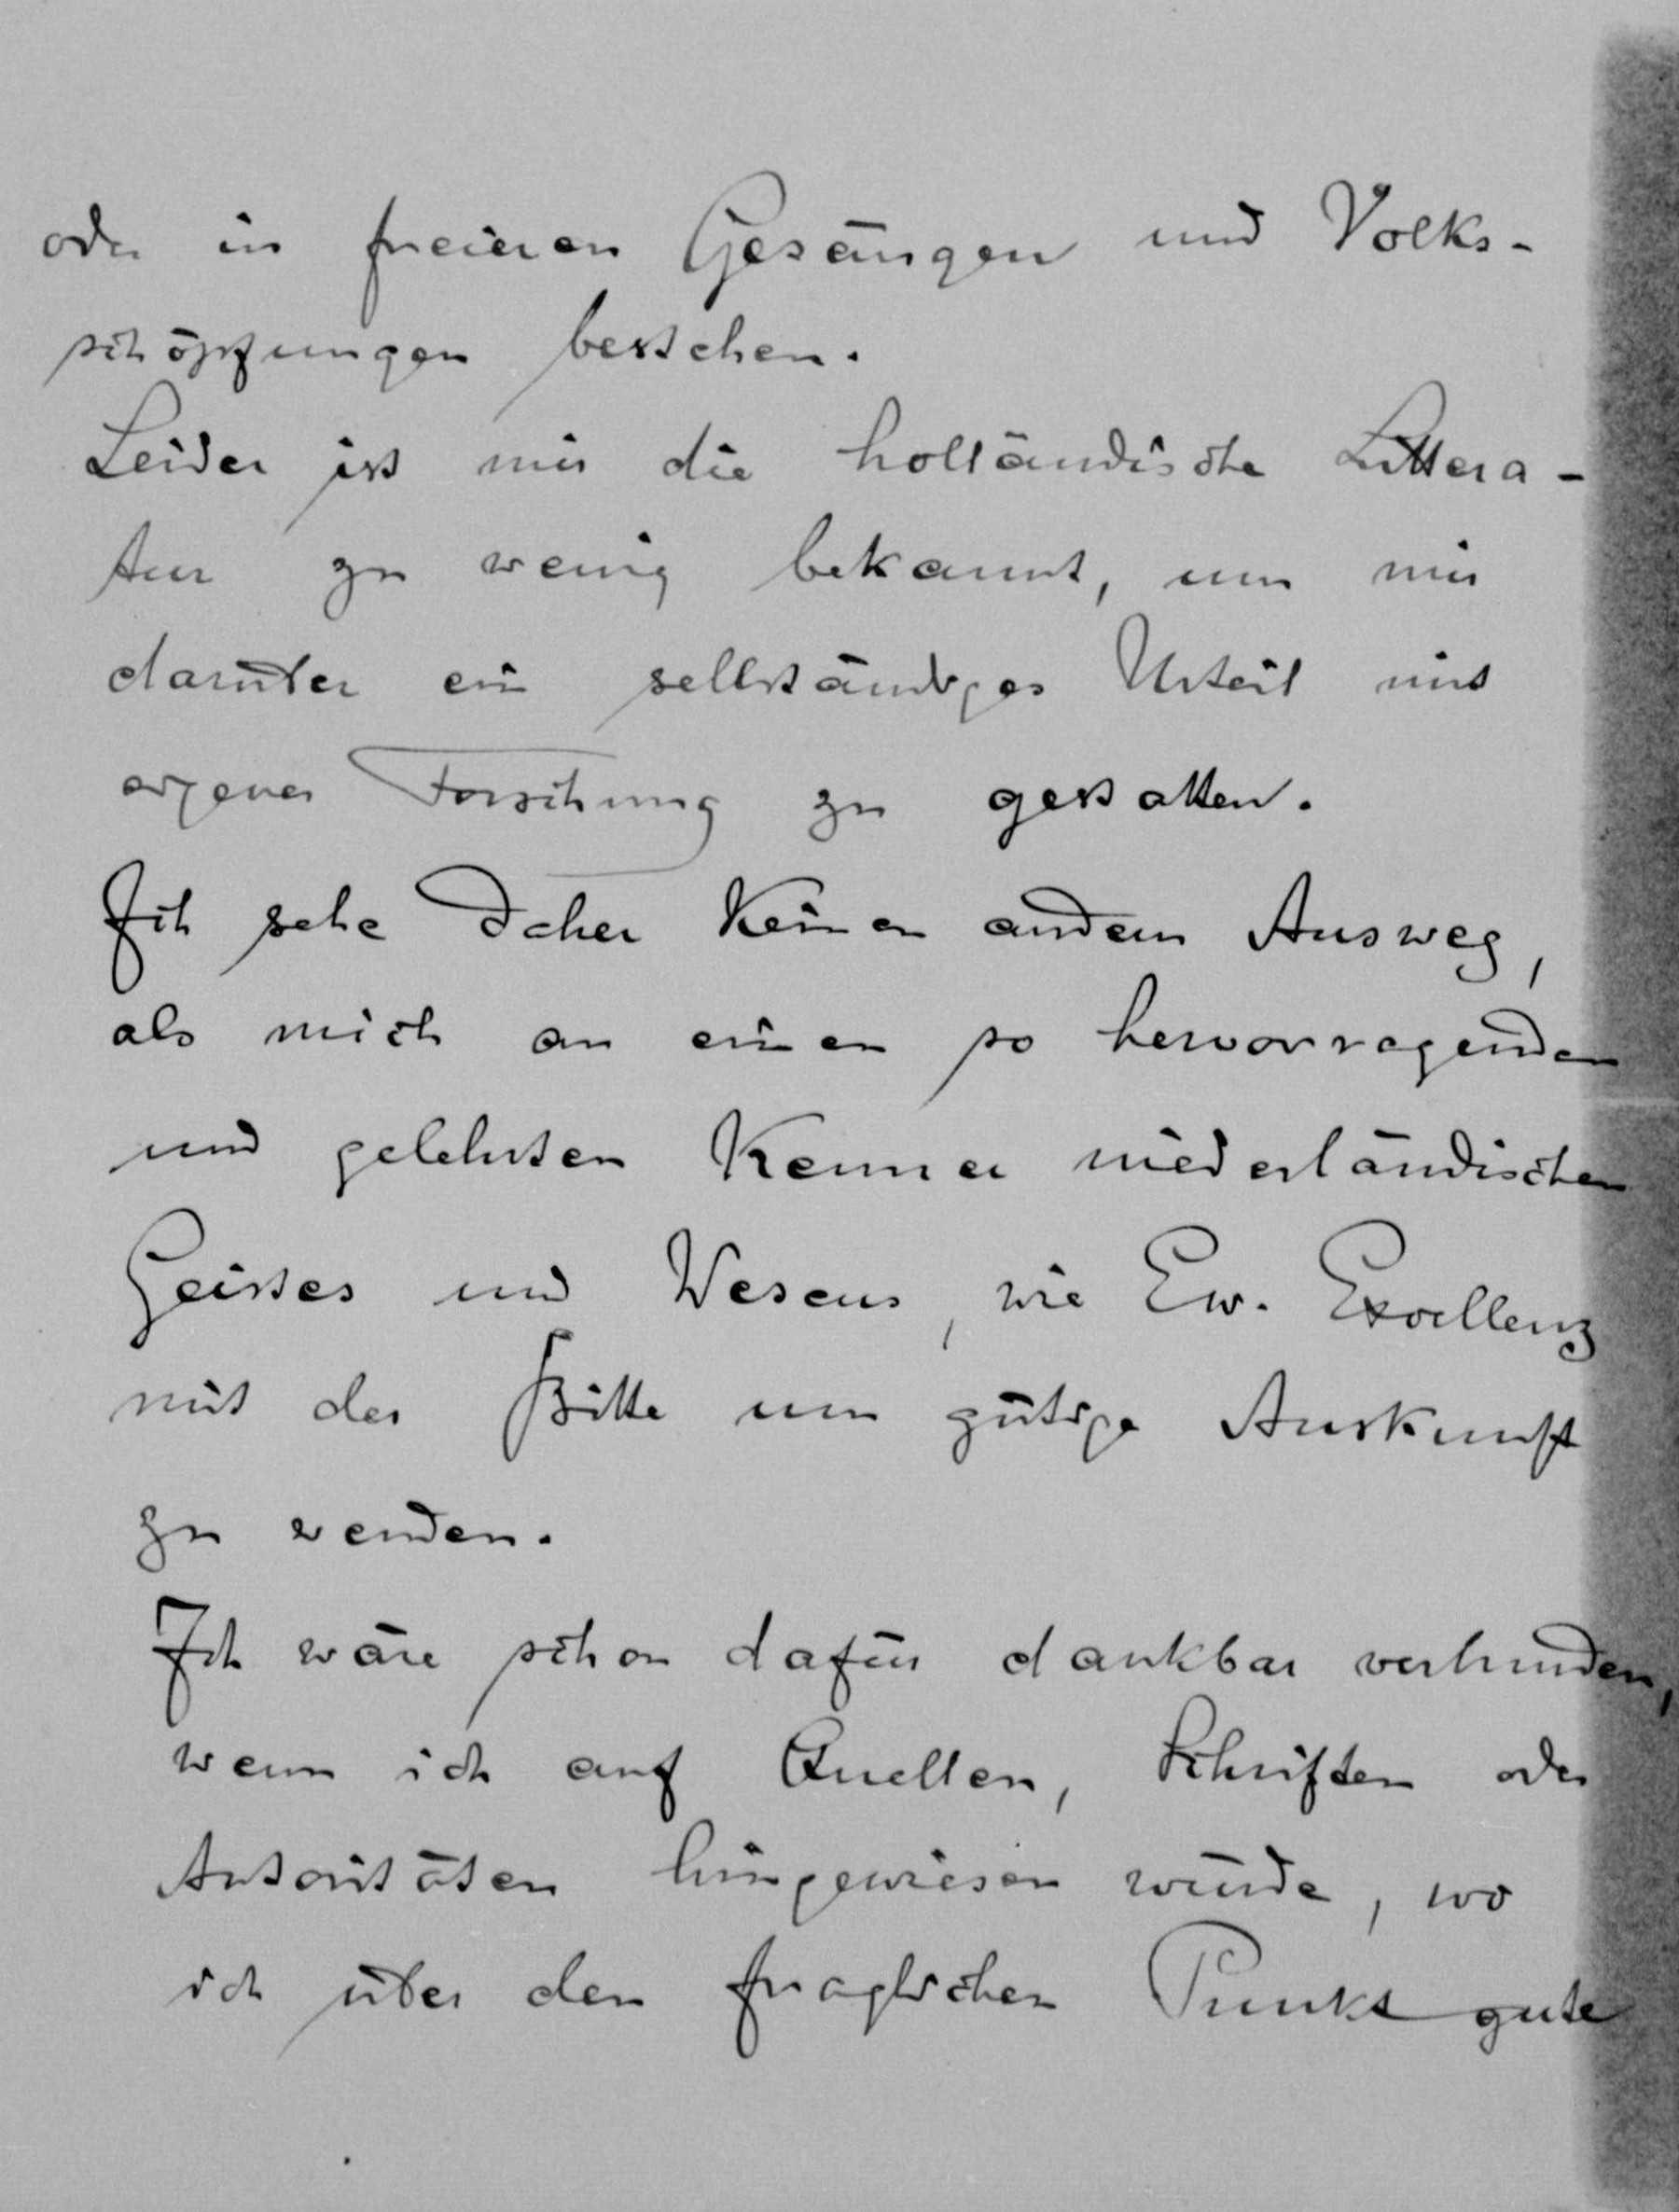 oder in freieren Gesängen und Volks-
schöpfungen bestehen.
Leider ist mir die holländische Littera-
tur zu wenig bekannt, um mir
darüber ein selbständiges Urteil mit
eigener Forschung zu gestatten.
Ich sehe daher keinen andern Ausweg,
als mich an einen so hervorragenden
und gelehrten Kenner niederländischen
Geistes und Wesens, wie Ew. Excellenz
mit der Bitte um gütige Auskunft
zu wenden.
Ich wäre schon dafür dankbar verbunden,
wenn ich auf Quellen, Schriften oder
Autoritäten hingewiesen würde, wo
ich über den fraglichen Punkt gute